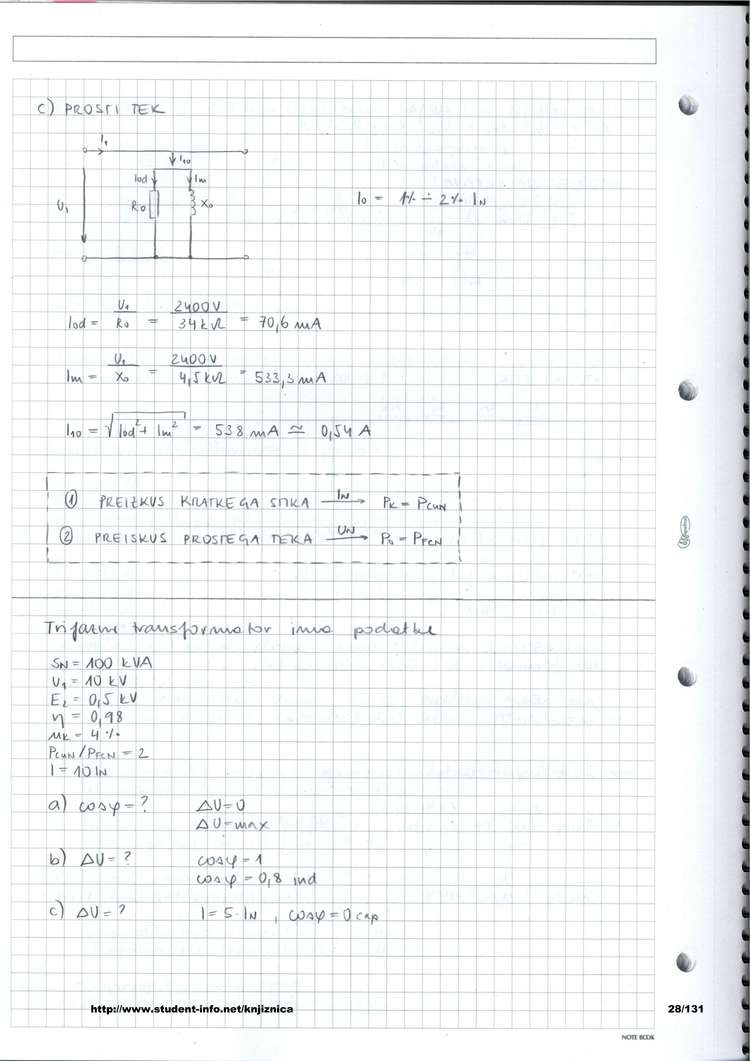 c) PROSTI TEK
I₁
I₁₀
Iod
Im
U₁
R₀
X₀
I₀ = 1% ÷ 2% IN
Iod = U₁/R₀ = 2400V/34kΩ = 70,6 mA
Im = U₁/X₀ = 2400V/4,5kΩ = 533,3 mA
I₁₀ = √(Iod² + Im²) = 538 mA ≃ 0,54 A
① PREIZKUS KRATKEGA STIKA —IN→ PK = PCUN
② PREISKUS PROSTEGA TEKA —UN→ P₀ = PFEN
Trifazni transformator ima podatke
SN = 100 kVA
U₁ = 10 kV
E₂ = 0,5 kV
η = 0,98
uK = 4 %
PCUN / PFEN = 2
I = 10 IN
a) cosφ = ? ΔU = 0
ΔU = max
b) ΔU = ? cosφ = 1
cosφ = 0,8 ind
c) ΔU = ? I = 5·IN , cosφ = 0 cap
http://www.student-info.net/knjiznica
28/131
NOTE BOOK